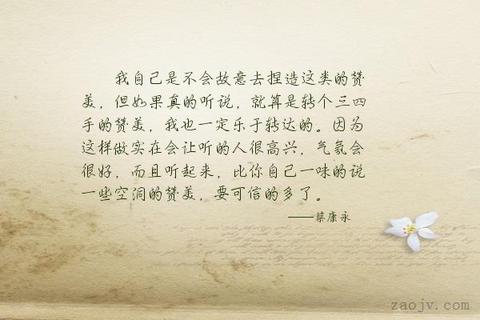 我自己是不会故意去捏造这类的赞
美，但如果真的听说，就算是转个三四
手的赞美，我也一定乐于转达的。因为
这样做实在会让听的人很高兴，气氛会
很好，而且听起来，比你自己一味的说
一些空洞的赞美，要可信的多了。
——蔡康永
zaojv.com